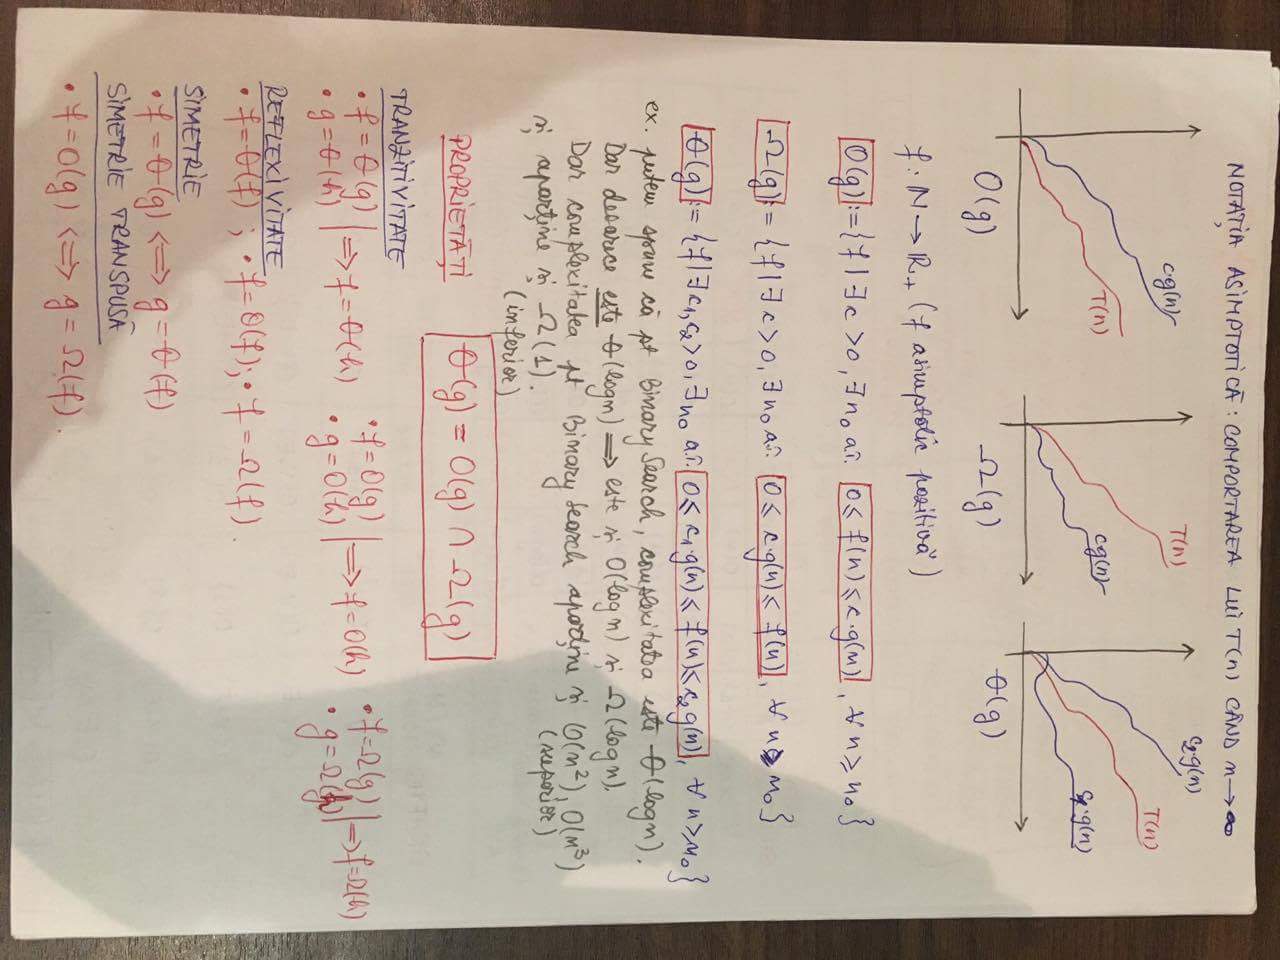 NOTAȚIA ASIMPTOTICĂ: COMPORTAREA LUI T(n) CÂND n→∞
c·g(n)
T(n)
O(g)
T(n)
cg(n)
Ω(g)
c₂·g(n)
T(n)
c₁·g(n)
θ(g)
f: N → R₊ (f asimptotic pozitivă)
O(g) := {f | ∃ c > 0, ∃ n₀ a.î. 0 ≤ f(n) ≤ c·g(n), ∀ n ≥ n₀}
Ω(g) := {f | ∃ c > 0, ∃ n₀ a.î. 0 ≤ c·g(n) ≤ f(n), ∀ n ≥ n₀}
θ(g) := {f | ∃ c₁, c₂ > 0, ∃ n₀ a.î. 0 ≤ c₁·g(n) ≤ f(n) ≤ c₂g(n), ∀ n ≥ n₀}
ex. putem spune că pt Binary Search, complexitatea este θ(logn).
Dar deoarece este θ(logn) ⟹ este și O(logn) și Ω(logn).
Dar complexitatea pt Binary Search aparține și O(n²), O(n³)
(superior)
și aparține și Ω(1).
(inferior)
PROPRIETĂȚI
θ(g) = O(g) ∩ Ω(g)
TRANZITIVITATE
• f = θ(g)
• g = θ(h)
⟹ f = θ(h)
• f = O(g)
• g = O(h)
⟹ f = O(h)
• f = Ω(g)
• g = Ω(h)
⟹ f = Ω(h)
REFLEXIVITATE
• f = θ(f) ; • f = O(f); • f = Ω(f).
SIMETRIE
• f = θ(g) ⟺ g = θ(f)
SIMETRIE TRANSPUSĂ
• f = O(g) ⟺ g = Ω(f).